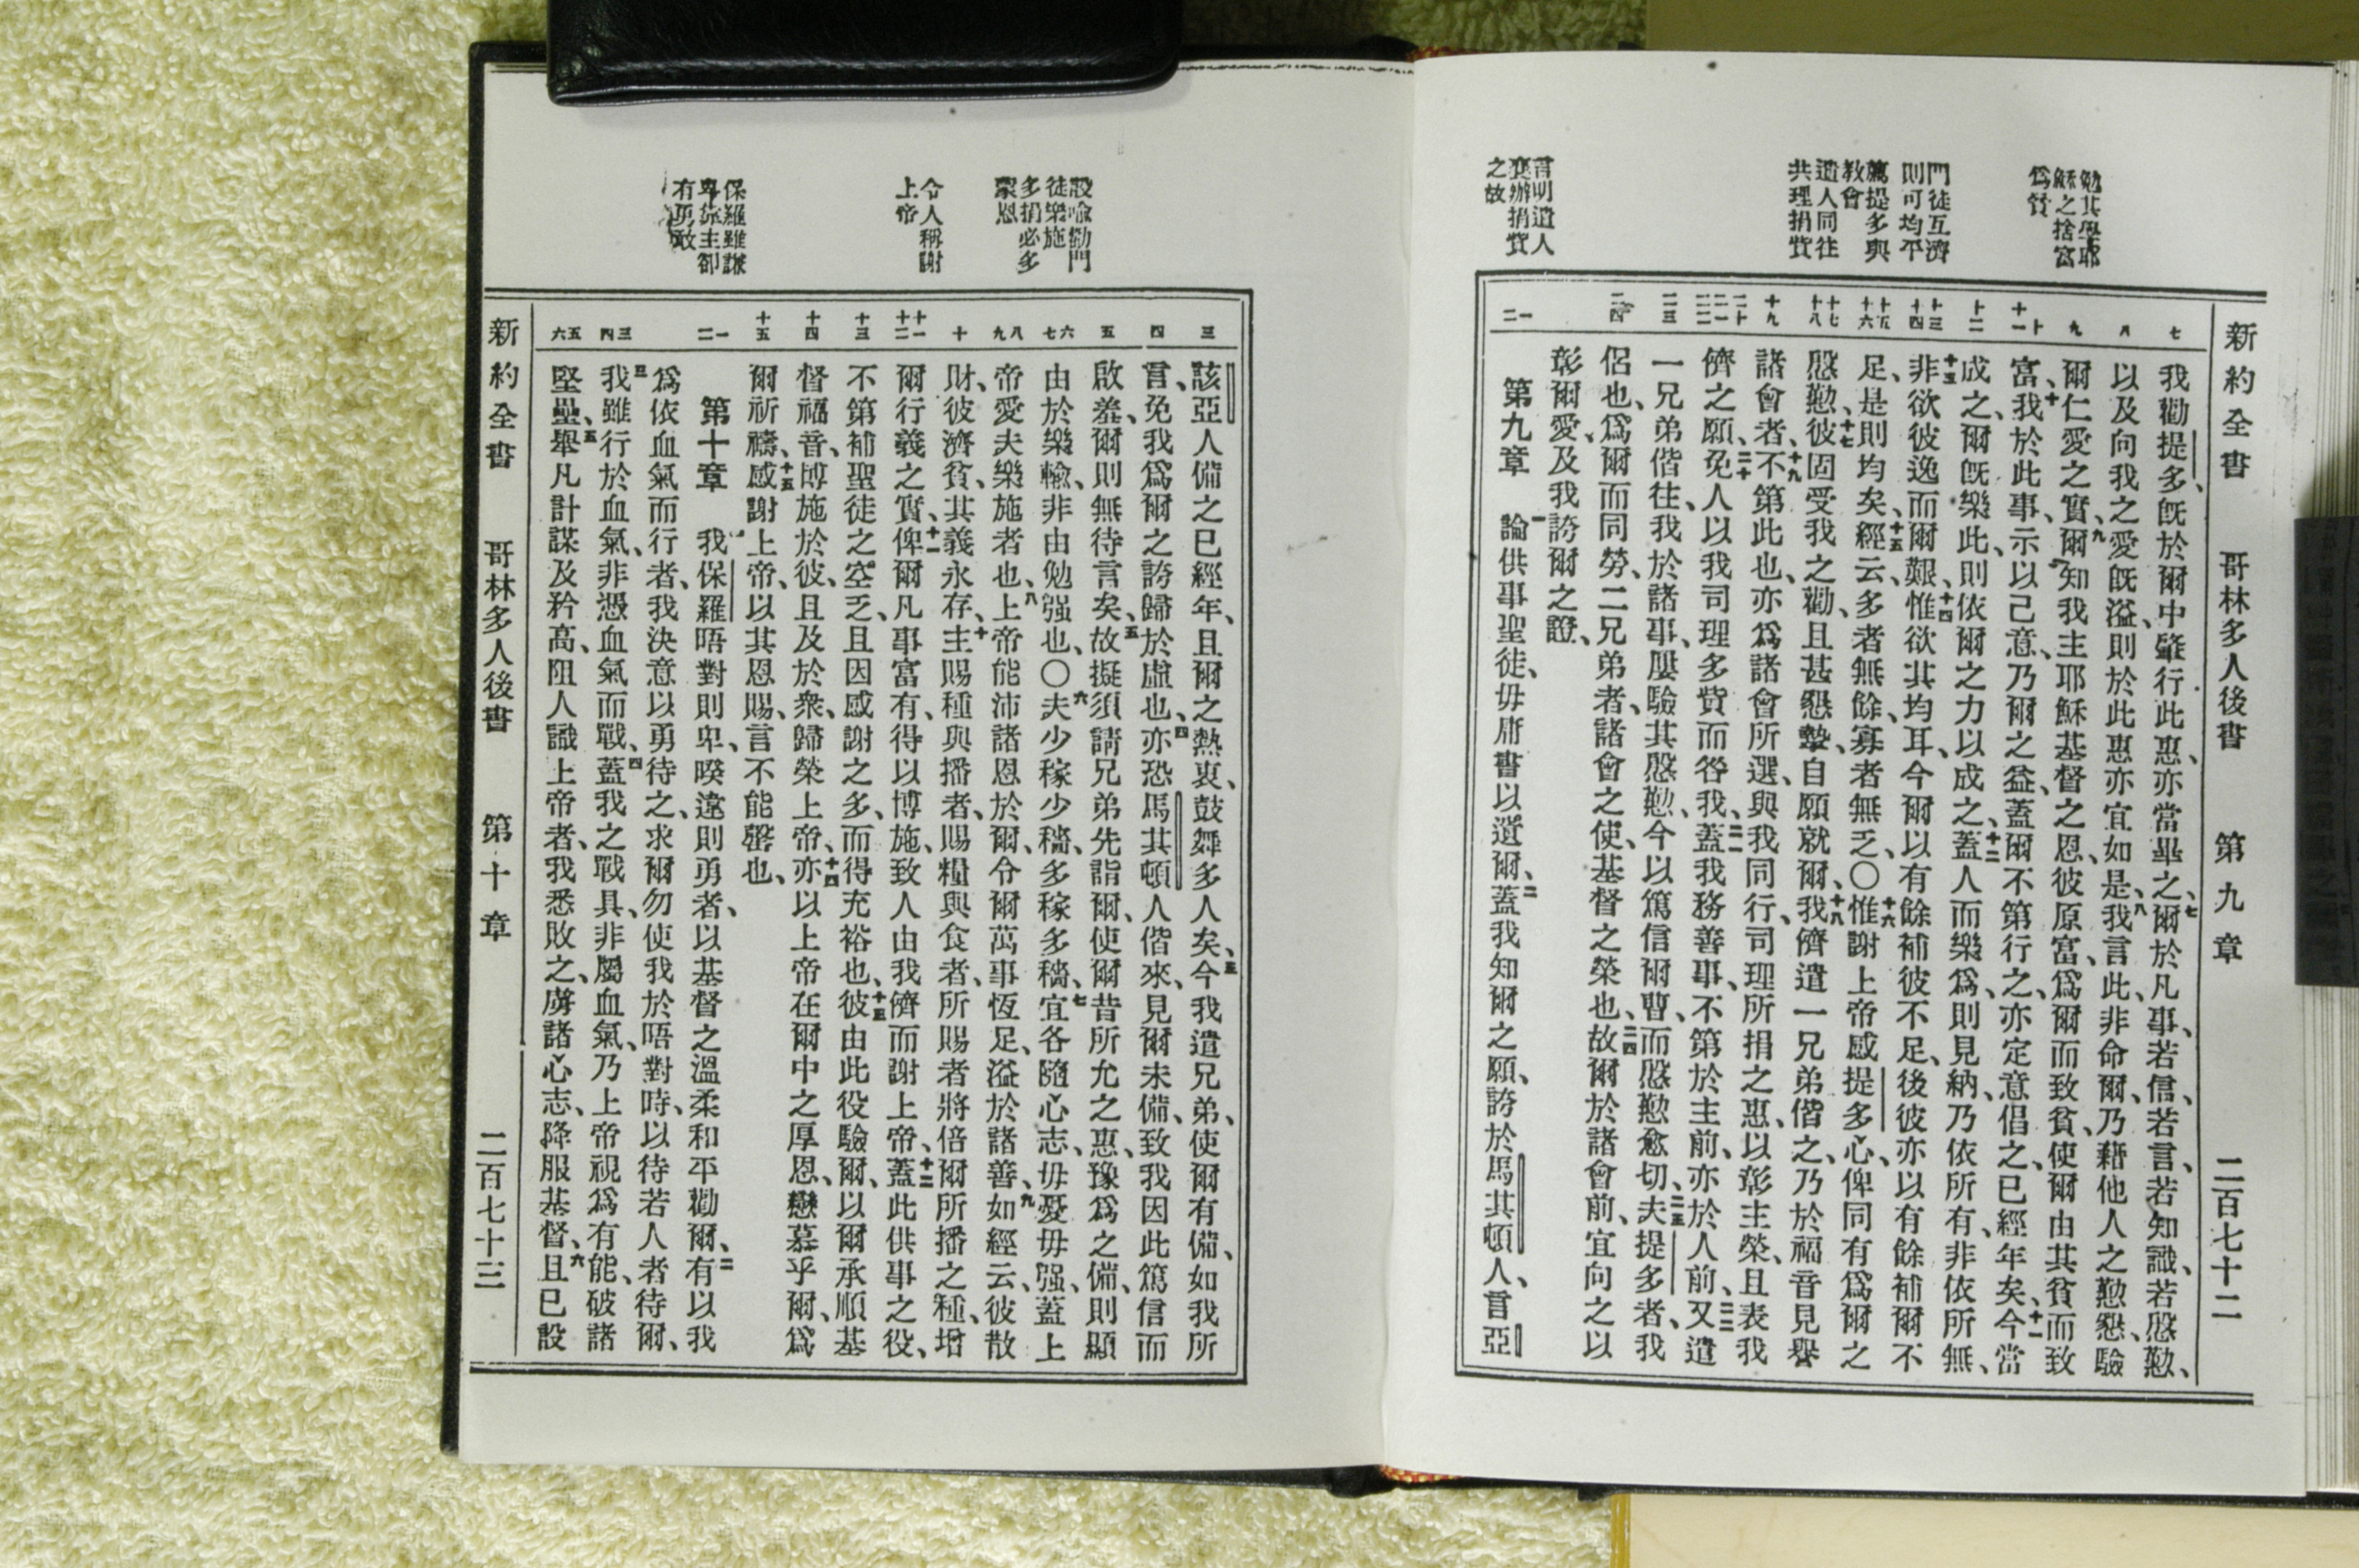 新約全書 哥林多人後書 第九章 二百七十二
勉其學耶
穌之捨富
爲貧
門徒互濟
則可均平
薦提多與
教會
遣人同往
共理捐貲
言明遣人
襄辦捐貲
之故
七
八
九
十
十一
十二
十三
十四
十五
十六
十七
十八
十九
二十
二一
二二
二三
二四
一
二
我勸提多、既於爾中肇行此惠、亦當畢之、七爾於凡事、若信、若言、若知識、若慇懃、
以及向我之愛既溢、則於此惠亦宜如是、八我言此、非命爾、乃藉他人之懃懇、驗
爾仁愛之實、九爾知我主耶穌基督之恩、彼原富、爲爾而致貧、使爾由其貧而致
富、十我於此事、示以己意、乃爾之益、蓋爾不第行之、亦定意倡之、已經年矣、十一今當
成之、爾既樂此、則依爾之力以成之、十二蓋人而樂爲、則見納、乃依所有、非依所無、
十三非欲彼逸而爾艱、十四惟欲其均耳、今爾以有餘補彼不足、後彼亦以有餘補爾不
足、是則均矣、十五經云、多者無餘、寡者無乏、〇十六惟謝上帝感提多心、俾同有爲爾之
慇懃、十七彼固受我之勸、且甚懇摯、自願就爾、十八我儕遣一兄弟偕之、乃於福音見譽
諸會者、十九不第此也、亦爲諸會所選、與我同行、司理所捐之惠、以彰主榮、且表我
儕之願、二十免人以我司理多貲而咎我、二一蓋我務善事、不第於主前、亦於人前、二二又遣
一兄弟偕往、我於諸事、屢驗其慇懃、今以篤信爾曹、而慇懃愈切、二三夫提多者、我
侶也、爲爾而同勞、二兄弟者、諸會之使、基督之榮也、二四故爾於諸會前、宜向之以
彰爾愛、及我誇爾之證、
第九章 一論供事聖徒、毋庸書以遺爾、二蓋我知爾之願、誇於馬其頓人、言亞
設喻勸門
徒樂施
多捐必多
蒙恩
令人稱謝
上帝
保羅雖謙
卑依主卻
有勇敢
三
四
五
六
七
八
九
十
十一
十二
十三
十四
十五
一
二
三
四
五
六
該亞人備之已經年、且爾之熱衷、鼓舞多人矣、三今我遣兄弟、使爾有備、如我所
言、免我爲爾之誇歸於虛也、四亦恐馬其頓人偕來、見爾未備、致我因此篤信而
啟羞、爾則無待言矣、五故擬須請兄弟先詣爾、使爾昔所允之惠、豫爲之備、則顯
由於樂輸、非由勉强也、〇六夫少稼少穡、多稼多穡、七宜各隨心志、毋憂毋强、蓋上
帝愛夫樂施者也、八上帝能沛諸恩於爾、令爾萬事恆足、溢於諸善、九如經云、彼散
財、彼濟貧、其義永存、十主賜種與播者、賜糧與食者、所賜者將倍爾所播之種、增
爾行義之實、十一俾爾凡事富有、得以博施、致人由我儕而謝上帝、十二蓋此供事之役、
不第補聖徒之空乏、且因感謝之多、而得充裕也、十三彼由此役驗爾、以爾承順基
督福音、博施於彼、且及於衆、歸榮上帝、十四亦以上帝在爾中之厚恩、戀慕乎爾、爲
爾祈禱、十五感謝上帝、以其恩賜、言不能罄也、
第十章 我保羅晤對則卑、暌遠則勇者、以基督之溫柔和平勸爾、二有以我
爲依血氣而行者、我決意以勇待之、求爾勿使我於晤對時、以待若人者待爾、
三我雖行於血氣、非憑血氣而戰、四蓋我之戰具、非屬血氣、乃上帝視爲有能、破諸
堅壘、五舉凡計謀及矜高、阻人識上帝者、我悉敗之、虜諸心志、降服基督、六且已設
新約全書 哥林多人後書 第十章 二百七十三